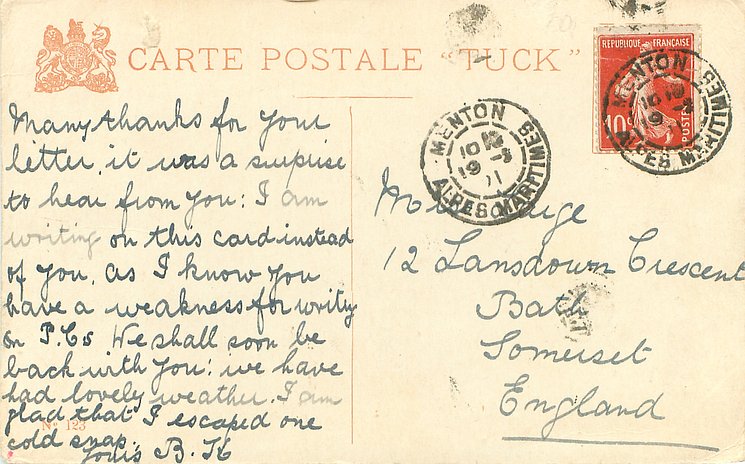 CARTE POSTALE "TUCK"
Many thanks for your
letter, it was a surprise
to hear from you: I am
writing on this card instead
of you, as I know you
have a weakness for writing
on P.Cs We shall soon be
back with you: we have
had lovely weather. I am
glad that I escaped one
cold snap.
Yours B. H
No 123
REPUBLIQUE FRANÇAISE
10
POSTES
MENTON
ALPES MARITIMES
MENTON
10
19 - 3
11
ALPES MARITIMES
12 Lansdown Crescent
Bath
Somerset
England